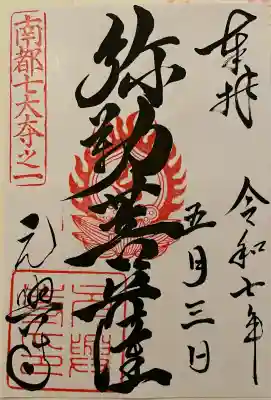 奉拝
令和七年
五月三日
弥勒菩薩
南都七大寺之一
元興寺